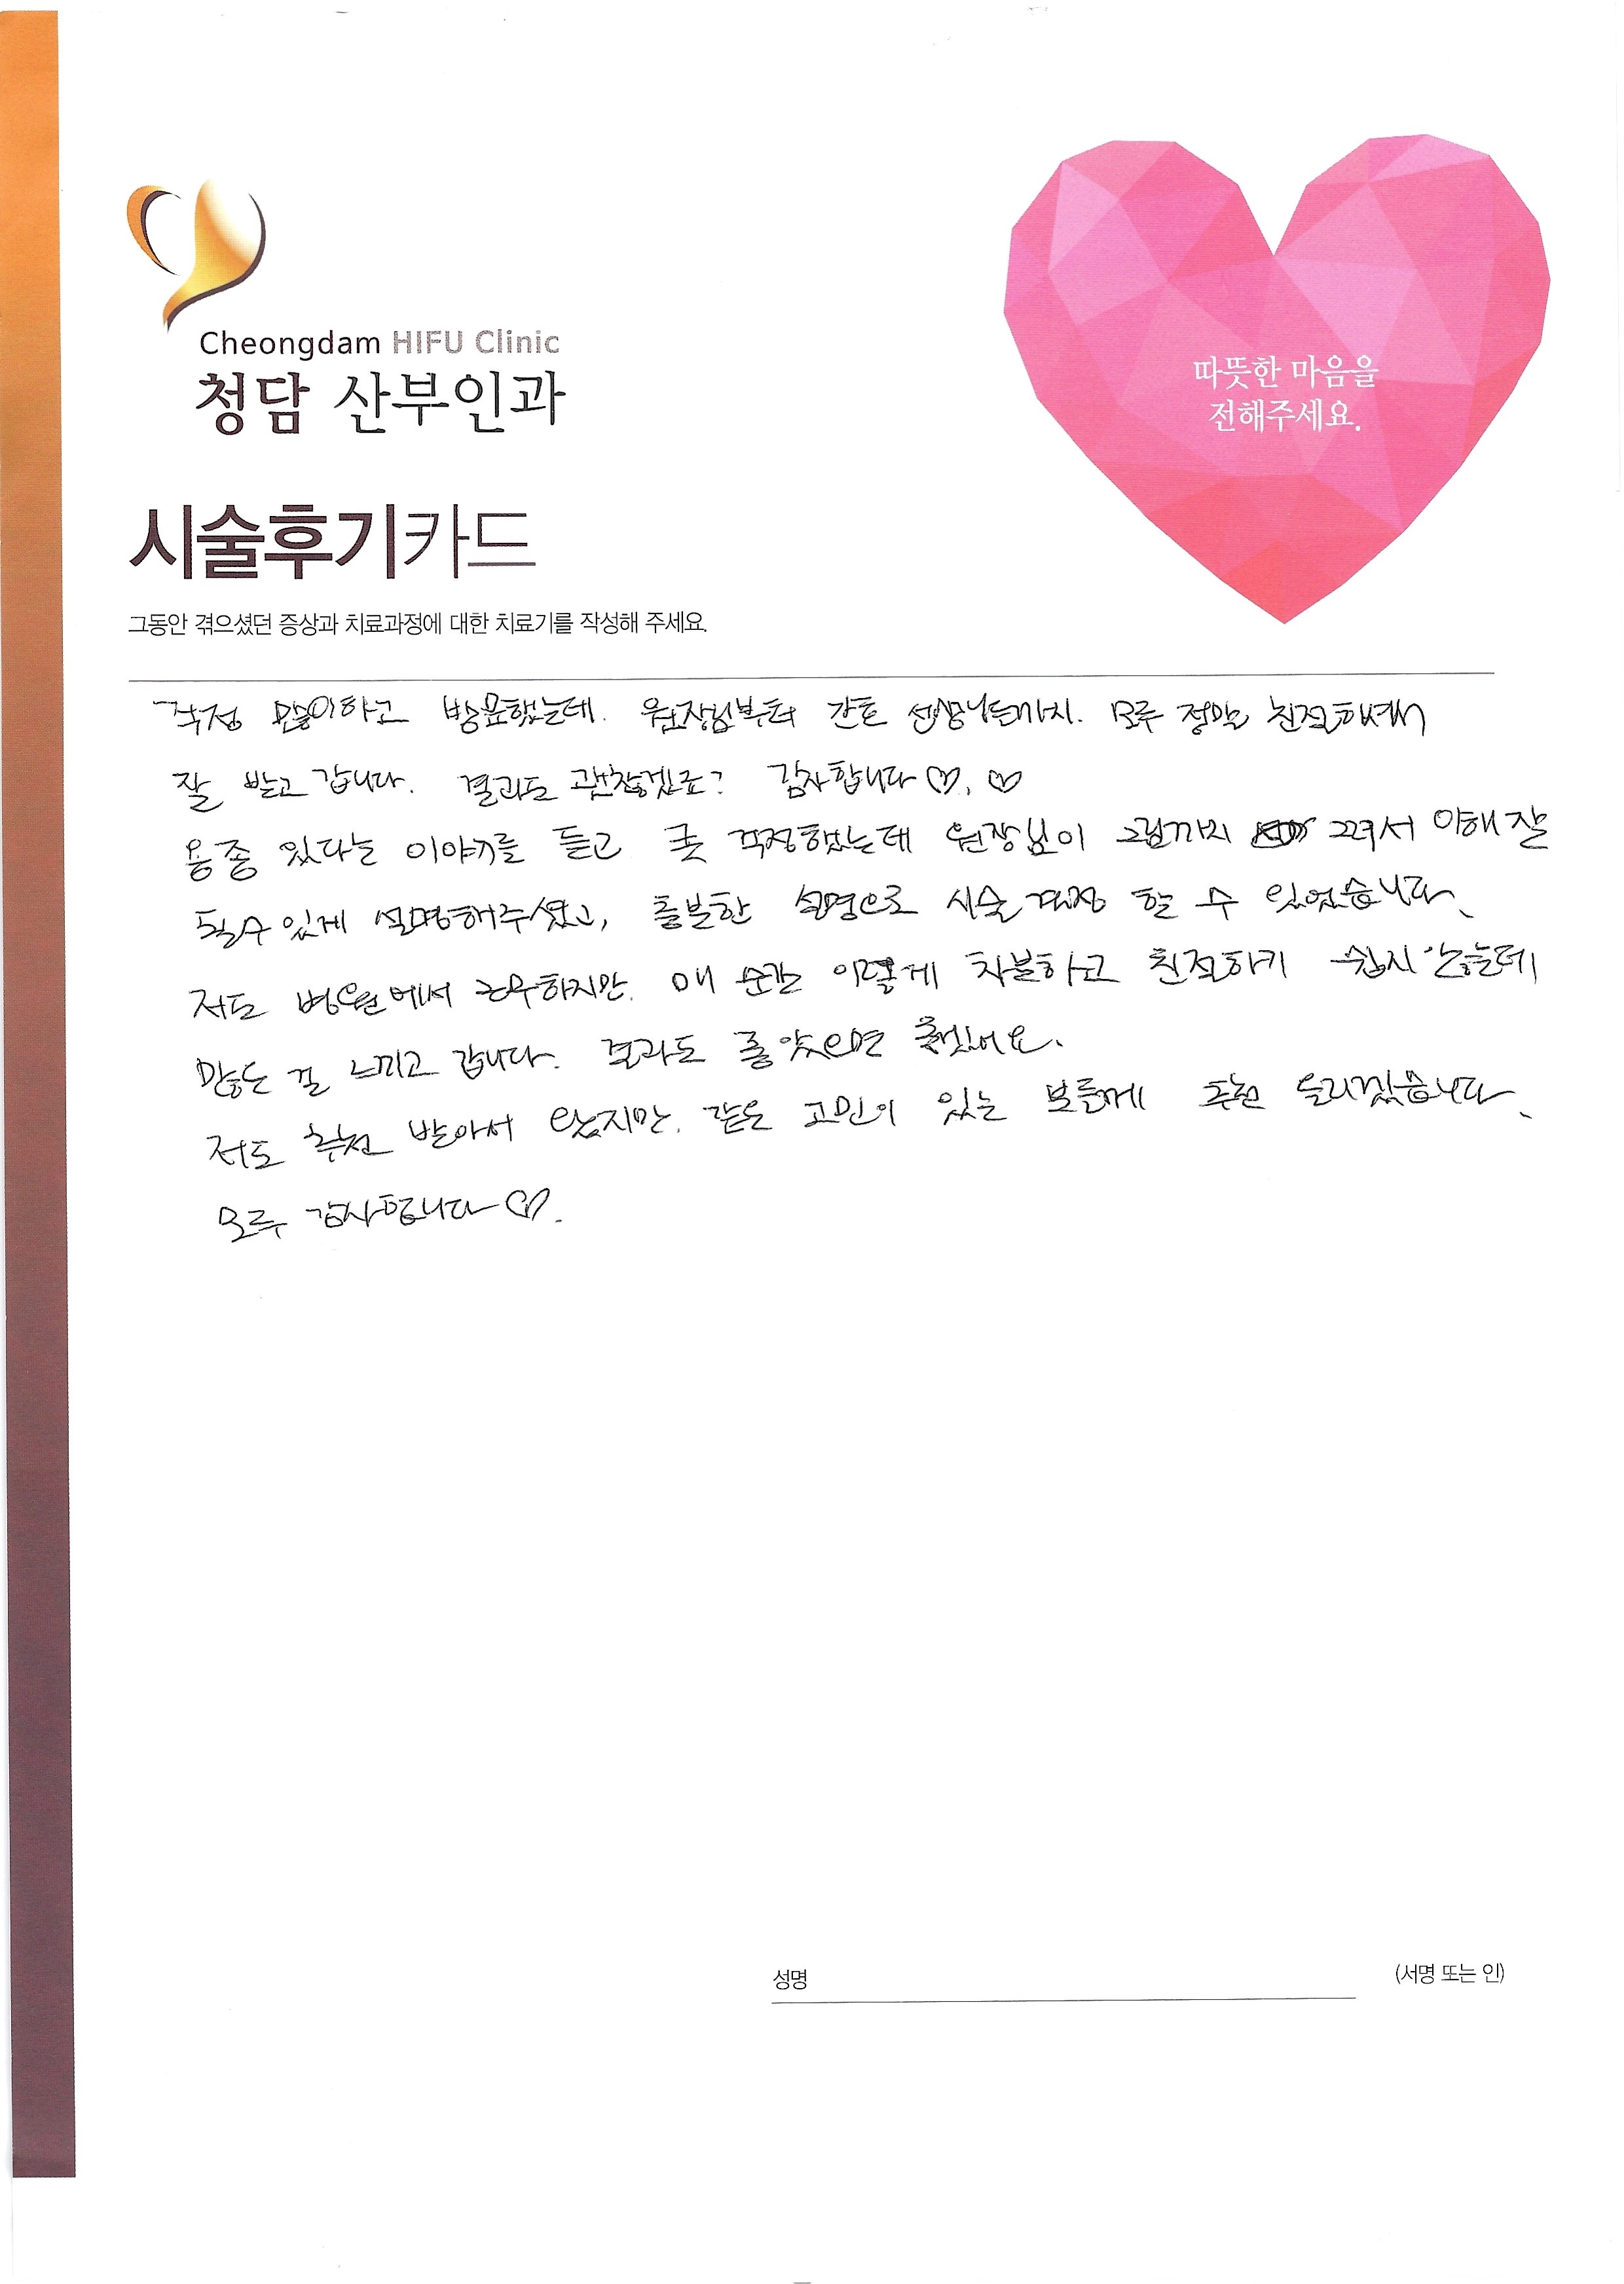 Cheongdam HIFU Clinic
청담 산부인과
따뜻한 마음을
전해주세요.
시술후기카드
그동안 겪으셨던 증상과 치료과정에 대한 치료기를 작성해 주세요.
걱정 많이하고 방문했는데. 원장님부터 간호 선생님들까지. 모두 정말 친절하셔서
잘 받고 갑니다. 결과도 괜찮겠죠? 감사합니다♡. ♡
용종 있다는 이야기를 듣고 걱정했는데 원장님이 그림까지 그려서 이해 잘
될수 있게 설명해주셨고, 충분한 설명으로 시술 결정 할 수 있었습니다.
저도 병원에서 근무하지만. 매 순간 이렇게 차분하고 친절하기 쉽지 않는데
많은 걸 느끼고 갑니다. 결과도 좋았으면 좋겠어요.
저도 추천 받아서 왔지만. 같은 고민이 있는 분들께 추천 드리겠습니다.
모두 감사합니다♡.
성명
(서명 또는 인)